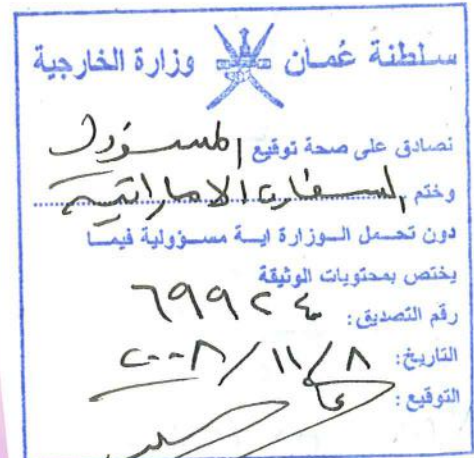 سلطنة عُمان وزارة الخارجية
نصادق على صحة توقيع المسؤول
وختم السفارة الاماراتية
دون تحمل الوزارة اية مسؤولية فيما
يختص بمحتويات الوثيقة
رقم التصديق: ٦٩٩٢٤
التاريخ: ٢٠٠٨/١١/٨
التوقيع: